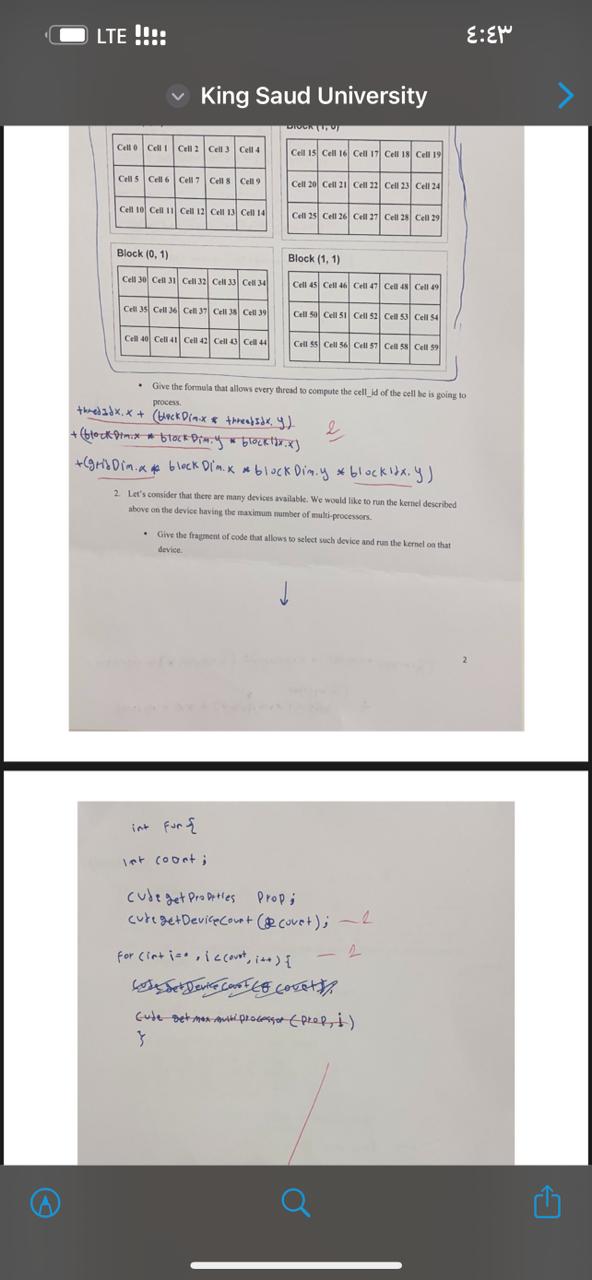 LTE
٤:٤٣
King Saud University
Block (1, 0)
Cell 0 Cell 1 Cell 2 Cell 3 Cell 4
Cell 5 Cell 6 Cell 7 Cell 8 Cell 9
Cell 10 Cell 11 Cell 12 Cell 13 Cell 14
Cell 15 Cell 16 Cell 17 Cell 18 Cell 19
Cell 20 Cell 21 Cell 22 Cell 23 Cell 24
Cell 25 Cell 26 Cell 27 Cell 28 Cell 29
Block (0, 1)
Cell 30 Cell 31 Cell 32 Cell 33 Cell 34
Cell 35 Cell 36 Cell 37 Cell 38 Cell 39
Cell 40 Cell 41 Cell 42 Cell 43 Cell 44
Block (1, 1)
Cell 45 Cell 46 Cell 47 Cell 48 Cell 49
Cell 50 Cell 51 Cell 52 Cell 53 Cell 54
Cell 55 Cell 56 Cell 57 Cell 58 Cell 59
• Give the formula that allows every thread to compute the cell_id of the cell he is going to
process.
thredIdx.x + (blockDim.x * threadIdx.y)
+ (blockDim.x * blockDim.y * blockIdx.x)
+ (gridDim.x * blockDim.x * blockDim.y * blockIdx.y)
2
2. Let's consider that there are many devices available. We would like to run the kernel described
above on the device having the maximum number of multi-processors.
• Give the fragment of code that allows to select such device and run the kernel on that
device.
2
int fun {
int count ;
prop ;
(& count) ;
for (int i=0 , i < count, i++) {
(prop, i)
}